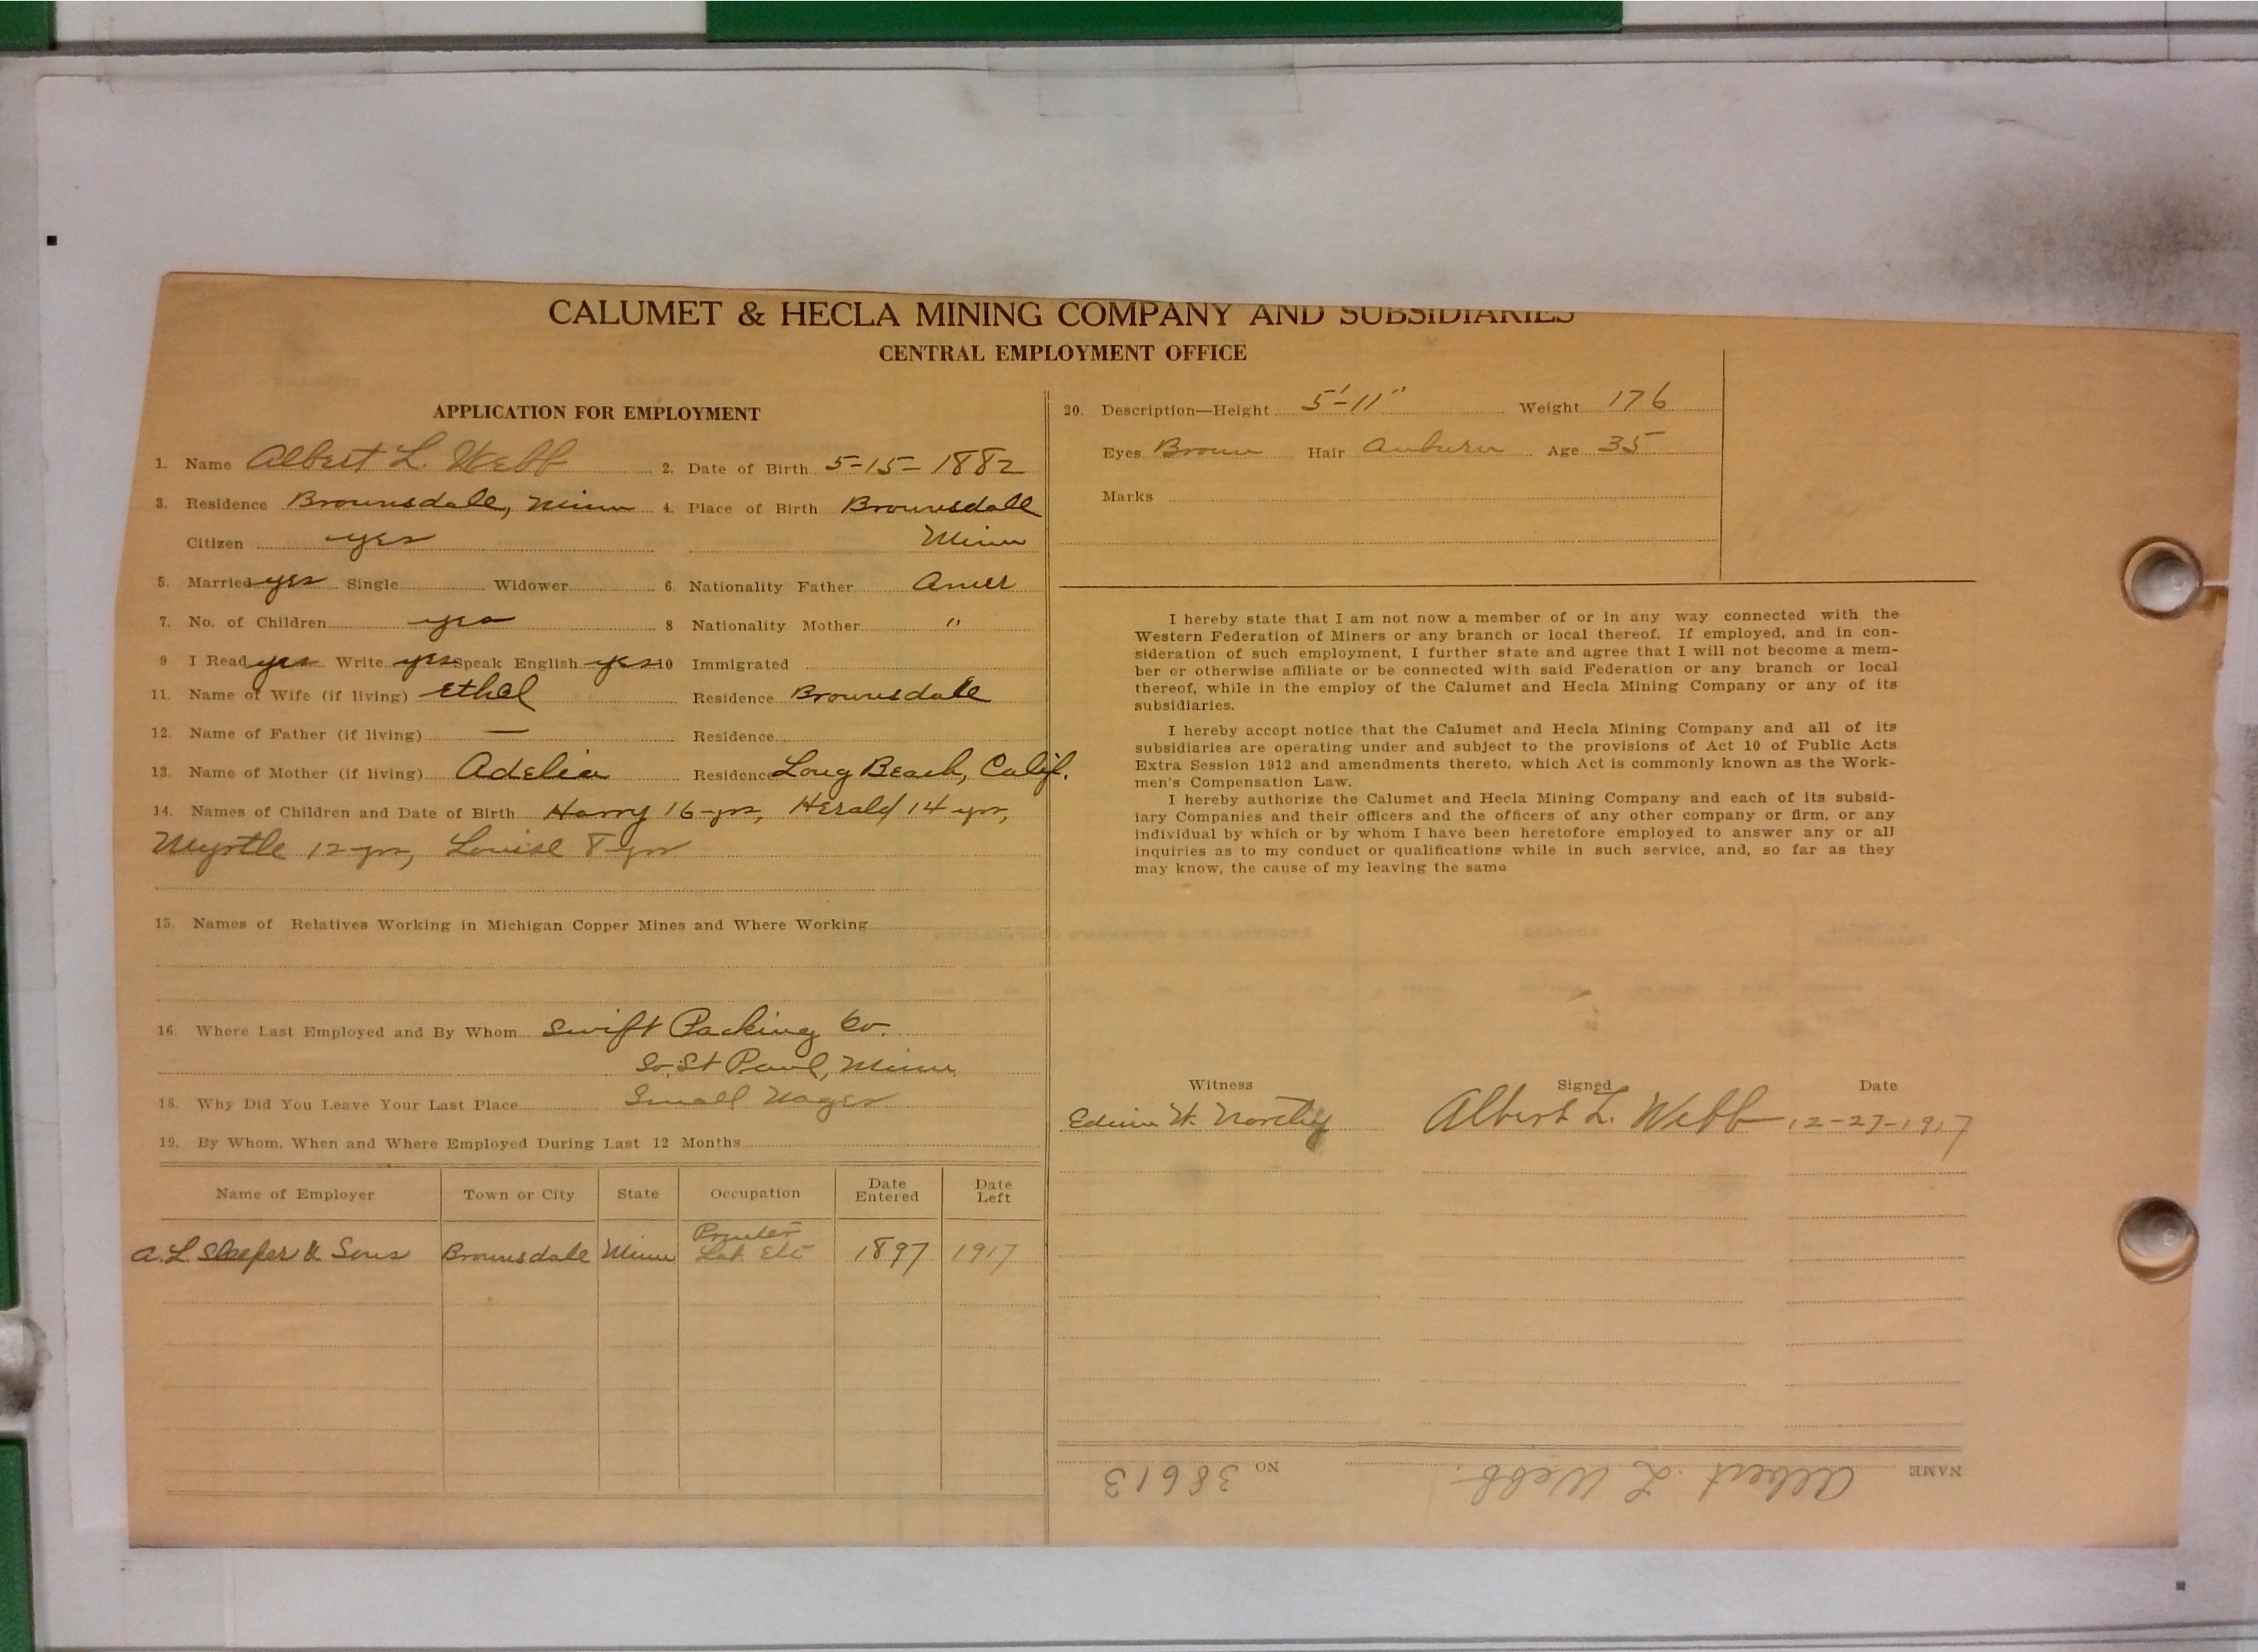 CALUMET & HECLA MINING COMPANY AND SUBSIDIARIES
CENTRAL EMPLOYMENT OFFICE
APPLICATION FOR EMPLOYMENT
1. Name Albert L. Webb 2. Date of Birth 5-15-1882
3. Residence Brownsdale, Minn 4. Place of Birth Brownsdale
Citizen yes Minn
5. Married yes Single Widower 6. Nationality Father Amer
7. No. of Children yes 8 Nationality Mother "
9 I Read yes Write yes Speak English yes 10 Immigrated
11. Name of Wife (if living) Ethel Residence Brownsdale
12. Name of Father (if living) — Residence
13. Name of Mother (if living) Adelia Residence Long Beach, Calif.
14. Names of Children and Date of Birth Harry 16 yrs, Herald 14 yrs,
Myrtle 12 yrs, Louise 8 yrs
15. Names of Relatives Working in Michigan Copper Mines and Where Working
16. Where Last Employed and By Whom Swift Packing Co.
So. St Paul, Minn.
18. Why Did You Leave Your Last Place Small Wages
19. By Whom, When and Where Employed During Last 12 Months
Name of Employer Town or City State Occupation Date Entered Date Left
A. L. Sleeper & Sons Brownsdale Minn Lab. Etc 1897 1917
20. Description—Height 5'-11" Weight 176
Eyes Brown Hair Auburn Age 35
Marks
I hereby state that I am not now a member of or in any way connected with the
Western Federation of Miners or any branch or local thereof. If employed, and in con-
sideration of such employment, I further state and agree that I will not become a mem-
ber or otherwise affiliate or be connected with said Federation or any branch or local
thereof, while in the employ of the Calumet and Hecla Mining Company or any of its
subsidiaries.
I hereby accept notice that the Calumet and Hecla Mining Company and all of its
subsidiaries are operating under and subject to the provisions of Act 10 of Public Acts
Extra Session 1912 and amendments thereto, which Act is commonly known as the Work-
men's Compensation Law.
I hereby authorize the Calumet and Hecla Mining Company and each of its subsid-
iary Companies and their officers and the officers of any other company or firm, or any
individual by which or by whom I have been heretofore employed to answer any or all
inquiries as to my conduct or qualifications while in such service, and, so far as they
may know, the cause of my leaving the same
Witness Signed Date
Edwin W. Northey Albert L. Webb 12-27-1917
NAME Albert L Webb. NO 38613